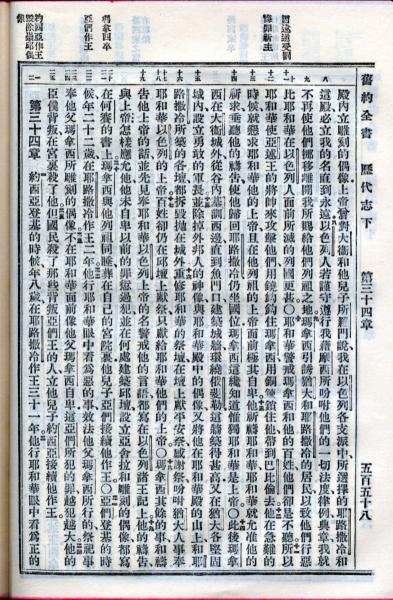 舊約全書　歷代志下　第三十四章　五百五十八
殿內立雕刻的偶像上帝曾對大衞和他兒子所羅門說我在以色列各支派中所選擇的耶路撒冷和
這殿必立我的名直到永遠以色列人若謹守遵行我藉摩西所吩咐他們的一切法度律例典章我就
不再使他們挪移離開我所賜給他們列祖之地瑪拿西引誘猶大和耶路撒冷的居民以致他們行惡
比耶和華在以色列人面前所滅的列國更甚〇耶和華警戒瑪拿西和他的百姓他們卻是不聽所以
耶和華使亞述王的將帥來攻擊他們用鐃鈎鈎住瑪拿西用銅鍊鎖住他帶到巴比倫去他在急難的
時候就懇求耶和華他的上帝且在他列祖的上帝面前極其自卑他祈禱耶和華耶和華就允准他的
祈求垂聽他的禱告使他歸回耶路撒冷仍坐國位瑪拿西這纔知道惟獨耶和華是上帝〇此後瑪拿
西在大衞城外從谷內基訓西邊直到魚門口建築城牆環繞俄斐勒這牆築得甚高又在猶大各堅固
城內設立勇敢的軍長並除掉外邦人的神像與耶和華殿中的偶像又將他在耶和華殿的山上和耶
路撒冷所築的各壇都拆毀拋在城外重修耶和華的祭壇在壇上獻平安祭感謝祭吩咐猶大人事奉
耶和華以色列的上帝百姓卻仍在邱壇上獻祭只獻給耶和華他們的上帝〇瑪拿西其餘的事和禱
告他上帝的話並先見奉耶和華以色列上帝的名警戒他的言語都寫在以色列諸王記上他的禱告
與上帝怎樣應允他他未自卑以前的罪愆過犯並在何處建築邱壇設立亞舍拉和雕刻的偶像都寫
在何賽的書上瑪拿西與他列祖同睡葬在自己的宮院裏他兒子亞們接續他作王〇亞們登基的時
候年二十二歲在耶路撒冷作王二年他行耶和華眼中看為惡的事效法他父瑪拿西所行的祭祀事
奉他父瑪拿西所雕刻的偶像不在耶和華面前像他父瑪拿西自卑這亞們所犯的罪越犯越大他的
臣僕背叛在宮裏殺了他但國民殺了那些背叛亞們王的人立他兒子約西亞接續他作王
第三十四章　約西亞登基的時候年八歲在耶路撒冷作王三十一年他行耶和華眼中看為正的
瑪拿西卒
亞們作王
約西亞作王